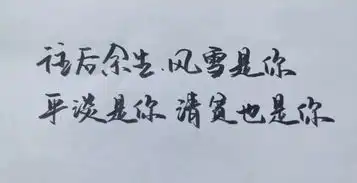 往后余生.风雪是你
平淡是你 清贫也是你